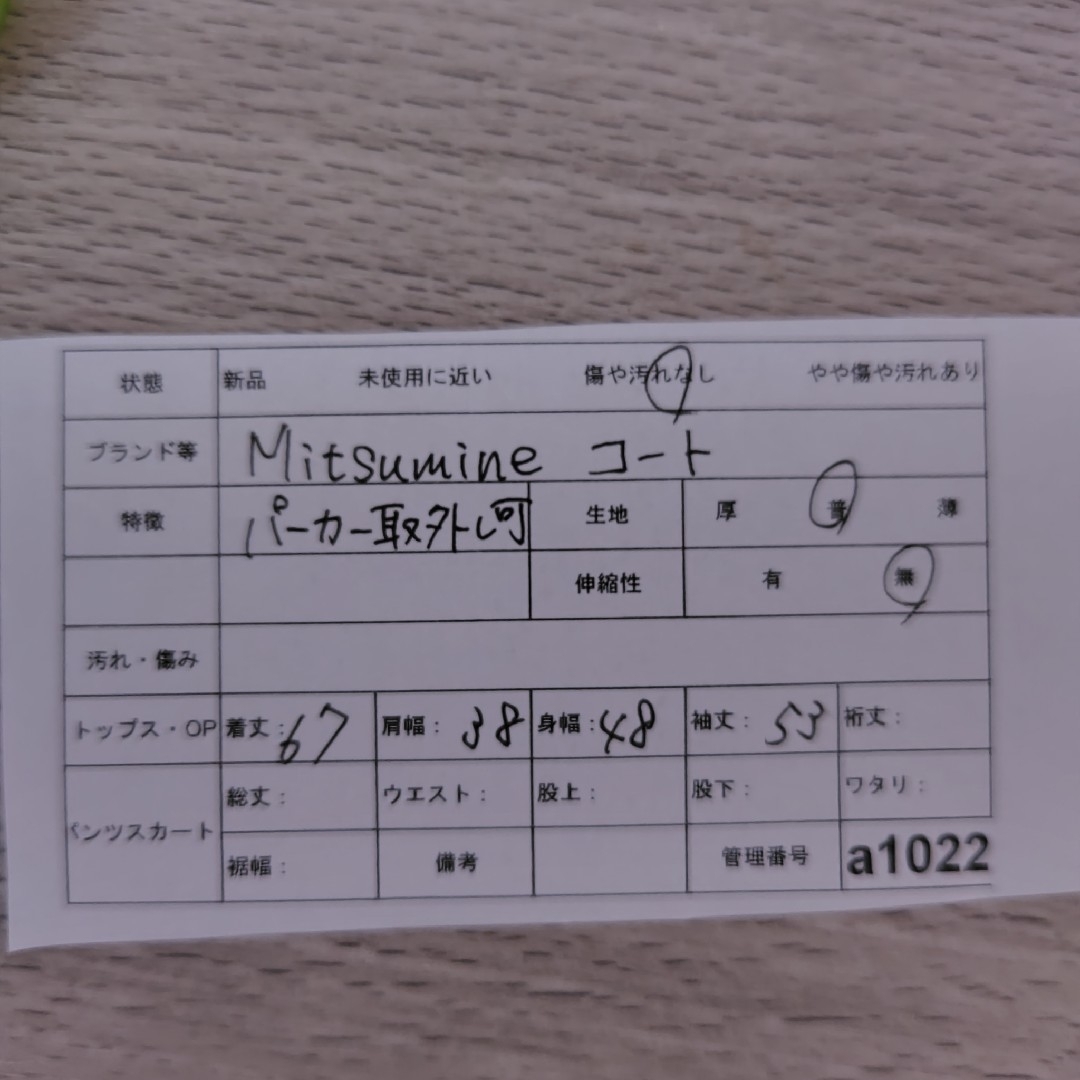 状態 新品 未使用に近い 傷や汚れなし やや傷や汚れあり
ブランド等 Mitsumine コート
特徴 パーカー取外し可 生地 厚 普 薄
伸縮性 有 無
汚れ・傷み
トップス・OP 着丈:67 肩幅: 38 身幅:48 袖丈: 53 裄丈:
パンツスカート 総丈: ウエスト: 股上: 股下: ワタリ:
裾幅: 備考 管理番号 a1022